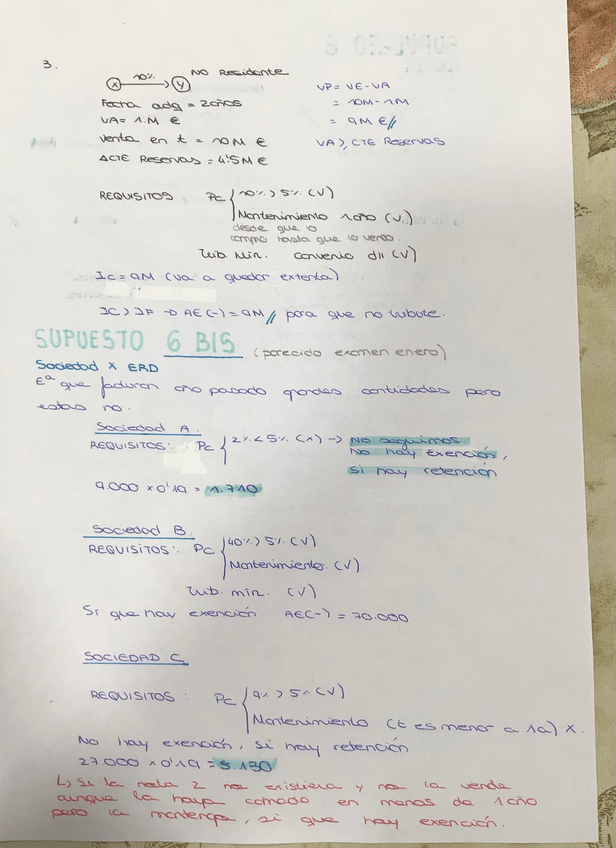 3.
10%
X → Y NO Residente
Fecha adq = 2 años
VA = 1.M €
Venta en t = 10 M €
Δ CTE Reservas = 4'5 M €
VP = VE - VA
= 10M - 1M
= 9M €//
VA >, CTE Reservas
REQUISITOS PC { 10% > 5% (V)
Mantenimiento 1 año (V)
desde que lo
compro hasta que lo vendo.
Trib. Min. Convenio dII (V)
Ic = 9M (va a quedar exenta)
IC > IF → AE(-) = 9M // para que no tribute.
SUPUESTO 6 BIS (parecido examen enero)
Sociedad X ERD
Eª que facturan año pasado grandes cantidades pero
estas no.
Sociedad A.
REQUISITOS: PC { 2% < 5% (X) → No seguimos
No hay exención,
si hay retención
9.000 x 0'19 = 1.710
Sociedad B.
REQUISITOS: PC { 40% > 5% (V)
Mantenimiento. (V)
Trib. min. (V)
Si que hay exención AE(-) = 70.000
SOCIEDAD C
REQUISITOS: PC { 9% > 5% (V)
Mantenimiento (t es menor a 1a) X.
No hay exención, si hay retención
27.000 x 0'19 = 5.130
L, Si la nota 2 no existiera y no la vende
aunque la haya comprado en menos de 1 año
pero la mantenga, si que hay exención.